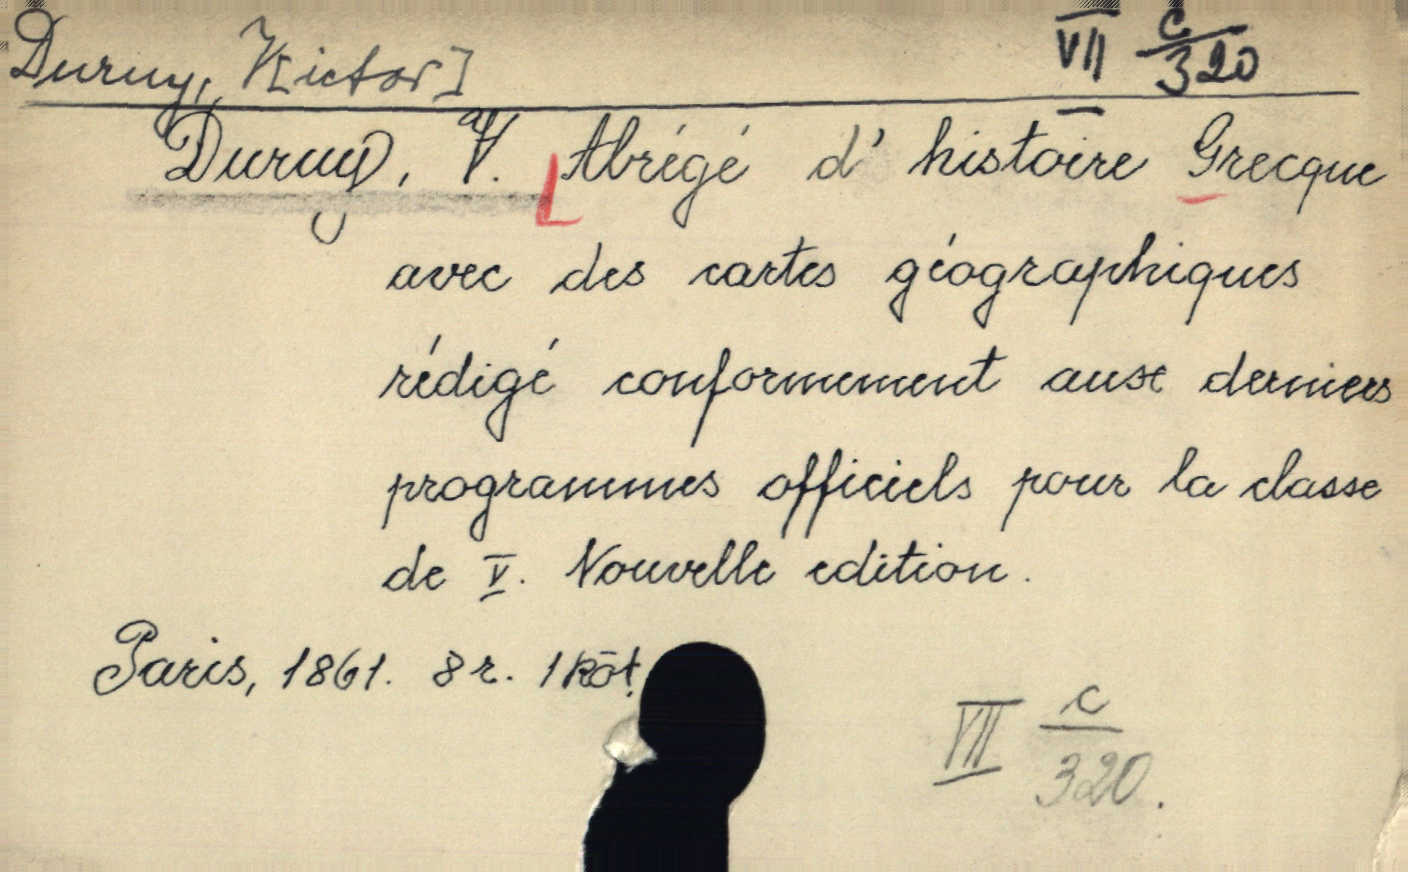 Duruy, V[ictor] VII c/320
Duruy, V. Abrégé d' histoire Grecque
avec des cartes géographiques
rédigé conformement aux derniers
programmes officiels pour la classe
de V. Nouvelle edition.
Paris, 1861. 8 r. 1 köt.
VII c/320.